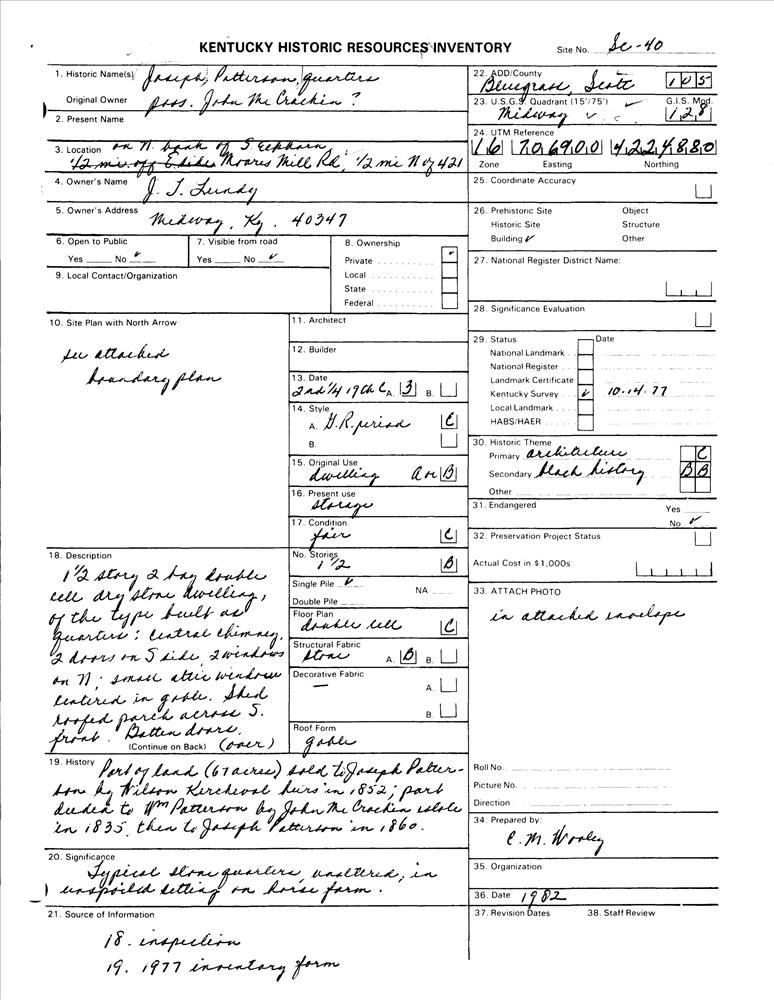 KENTUCKY HISTORIC RESOURCES INVENTORY
Site No. Sc-40
1. Historic Name(s) Joseph Patterson, quarters
Original Owner poss. John McCrackin ?
2. Present Name
3. Location on N. bank of S Elkhorn
1/2 mi. off Moores Mill Rd, 1/2 mi N of 421
4. Owner's Name J. T. Lundy
5. Owner's Address Midway, Ky. 40347
6. Open to Public
Yes No ✓
7. Visible from road
Yes No ✓
8. Ownership
Private ✓
Local
State
Federal
9. Local Contact/Organization
10. Site Plan with North Arrow
see attached
boundary plan
11. Architect
12. Builder
13. Date
2nd 1/4 19th C A. 3 B.
14. Style
A. G.R. period C
B.
15. Original Use
dwelling A or B
16. Present use
storage
17. Condition
fair C
18. Description
1 1/2 story 2 bay double
cell dry stone dwelling,
of the type built as
quarters: central chimney,
2 doors on S side, 2 windows
on N; small attic windows
centered in gable. Shed
roofed porch across S.
front. Batten doors.
(Continue on Back) (over)
No. Stories
1 1/2 B
Single Pile ✓ NA
Double Pile
Floor Plan
double cell C
Structural Fabric
stone A. B B.
Decorative Fabric
— A.
B.
Roof Form
gable
19. History Part of land (67 acres) sold to Joseph Patter-
son by Wilson Kercheval heirs in 1852; part
deeded to Wm Patterson by John McCrackin estate
in 1835, then to Joseph Patterson in 1860.
20. Significance
Typical stone quarters, unaltered, in
unspoiled setting on horse farm.
21. Source of Information
18. inspection
19. 1977 inventory form
22. ADD/County
Bluegrass, Scott 105
23. U.S.G.S. Quadrant (15'/75') ✓ G.I.S. Mod.
Midway 128
24. UTM Reference
16 706900 4224880
Zone Easting Northing
25. Coordinate Accuracy
26. Prehistoric Site Object
Historic Site Structure
Building ✓ Other
27. National Register District Name:
28. Significance Evaluation
29. Status Date
National Landmark
National Register
Landmark Certificate
Kentucky Survey ✓ 10-14-77
Local Landmark
HABS/HAER
30. Historic Theme
Primary architecture C
Secondary black history B B
Other
31. Endangered Yes
No ✓
32. Preservation Project Status
Actual Cost in $1,000s
33. ATTACH PHOTO
in attached envelope
Roll No.
Picture No.
Direction
34. Prepared by:
C. M. Wooley
35. Organization
36. Date 1982
37. Revision Dates 38. Staff Review